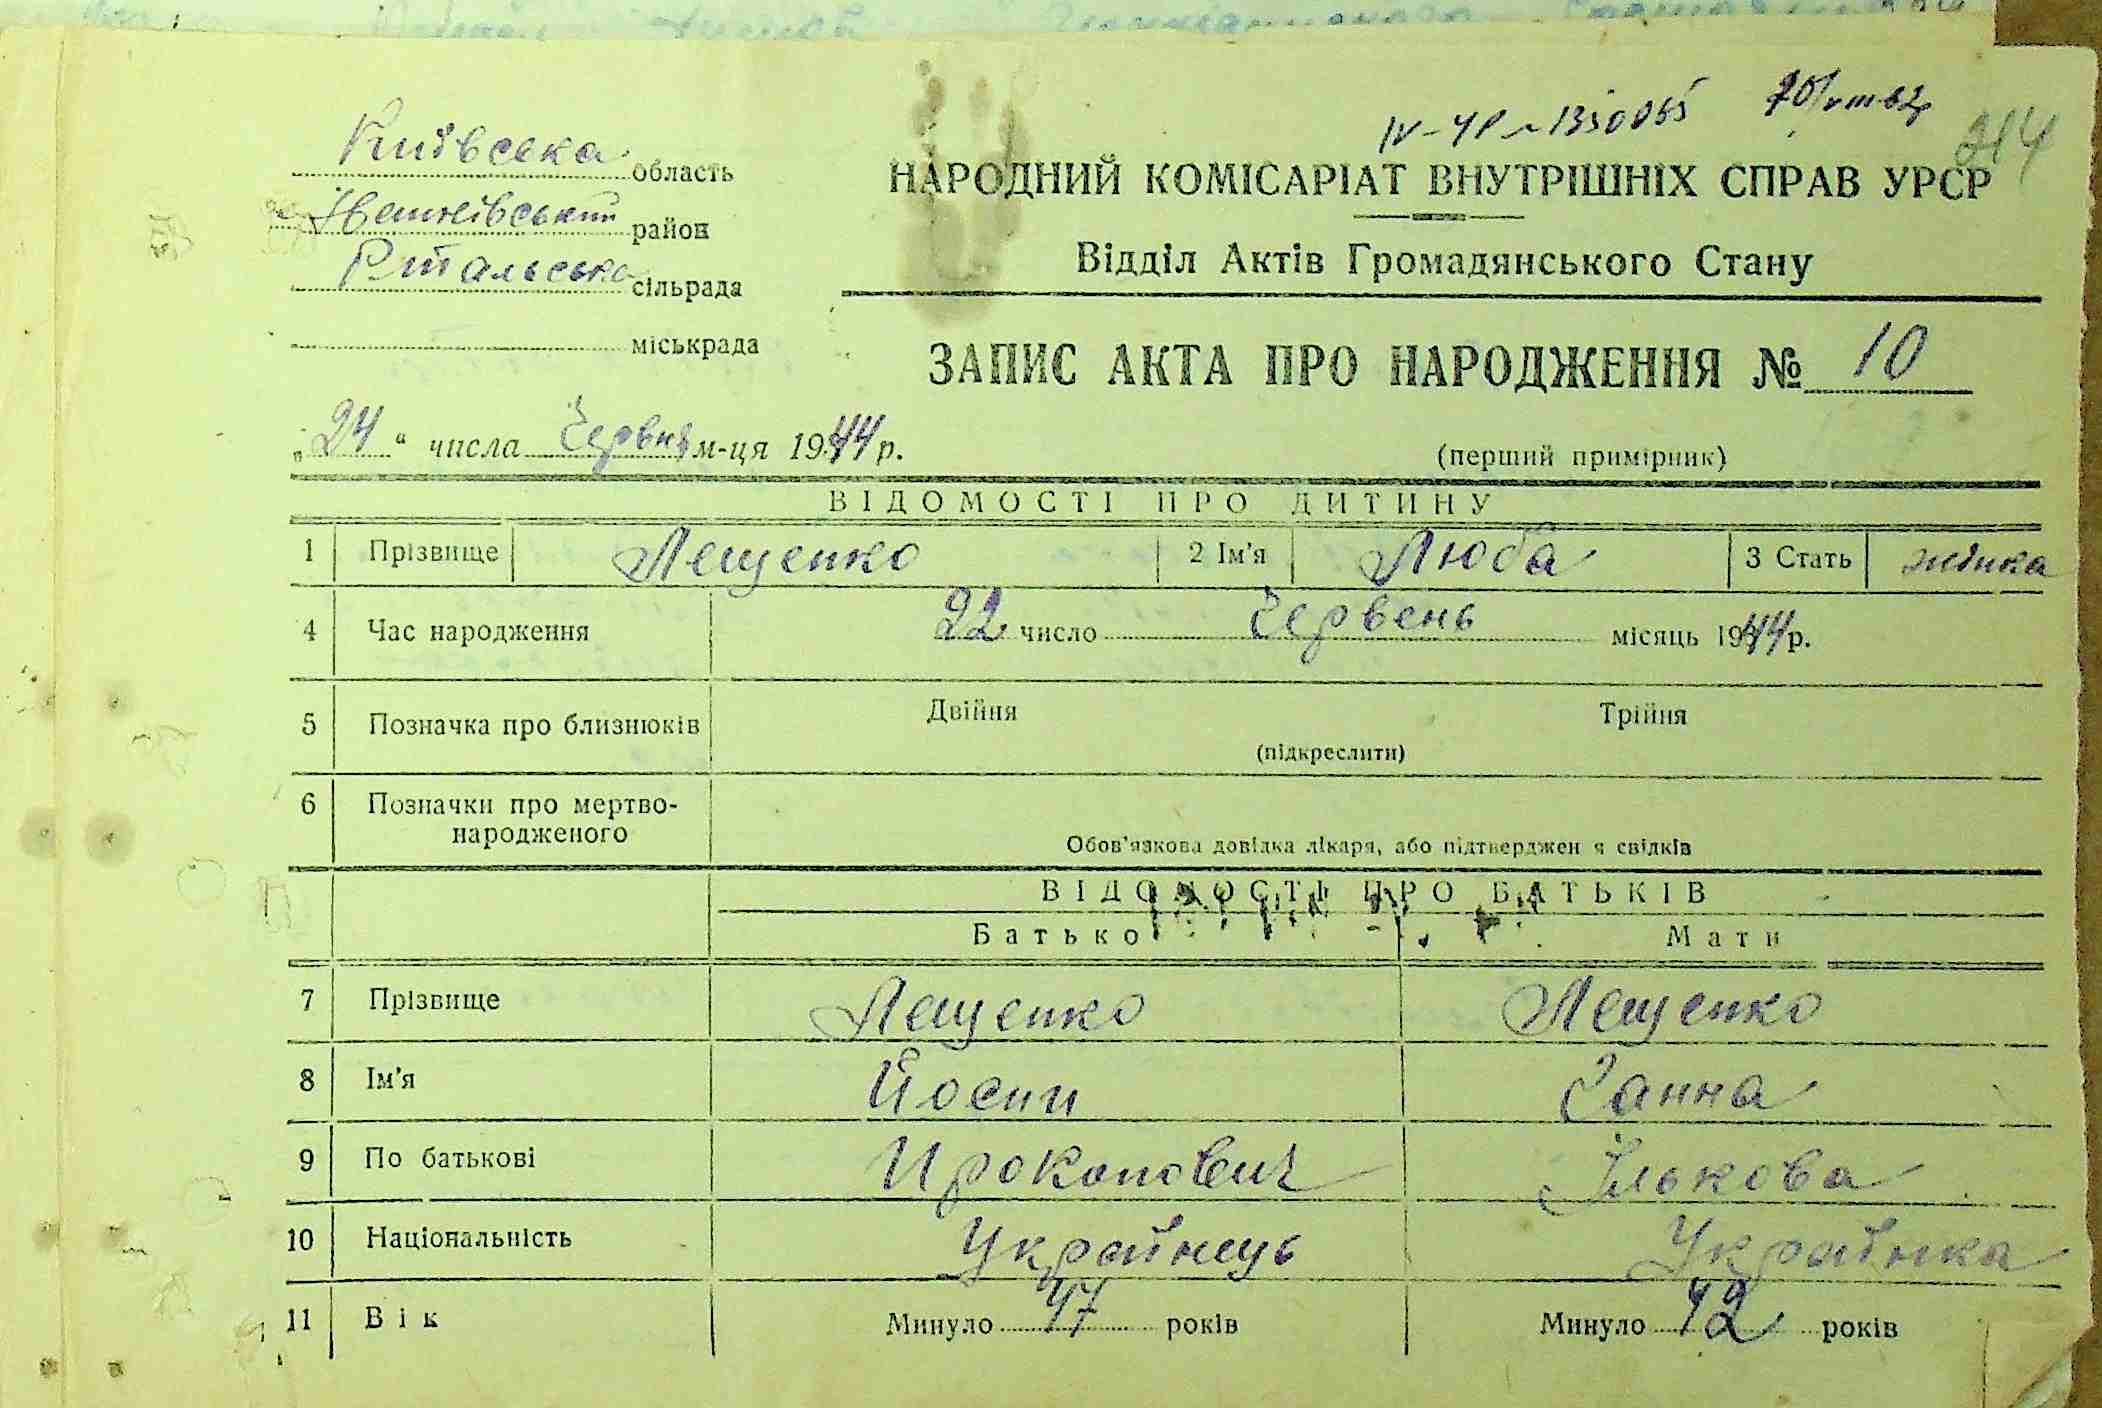 IV-УР № 1330065
214
Київська область
Іванківський район
сільрада
міськрада
НАРОДНИЙ КОМІСАРІАТ ВНУТРІШНІХ СПРАВ УРСР
Відділ Актів Громадянського Стану
ЗАПИС АКТА ПРО НАРОДЖЕННЯ № 10
„24“ числа Червня м-ця 1944 р.
(перший примірник)
ВІДОМОСТІ ПРО ДИТИНУ
1 Прізвище Лещенко 2 Ім'я Люба 3 Стать жінка
4 Час народження 22 число Червень місяць 1944 р.
5 Позначка про близнюків Двійня Трійня
(підкреслити)
6 Позначки про мертво-
народженого
Обов'язкова довідка лікаря, або підтверджен я свідків
ВІДОМОСТІ ПРО БАТЬКІВ
Батько Мати
7 Прізвище Лещенко Лещенко
8 Ім'я Йосип Ганна
9 По батькові Прокопович Ількова
10 Національність Українець Українка
11 Вік Минуло 47 років Минуло 42 років